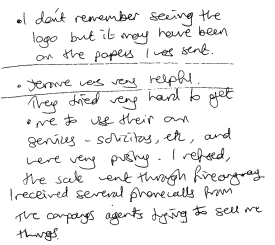 • I don't remember seeing the
logo but it may have been
on the papers I was sent.
• Jerome was very helpful.
They tried very hard to get
• me to use their own
services - solicitors, etc, and
were very pushy. I refused,
the sale went through anyway
I received several phonecalls from
the company agents trying to sell me
things.